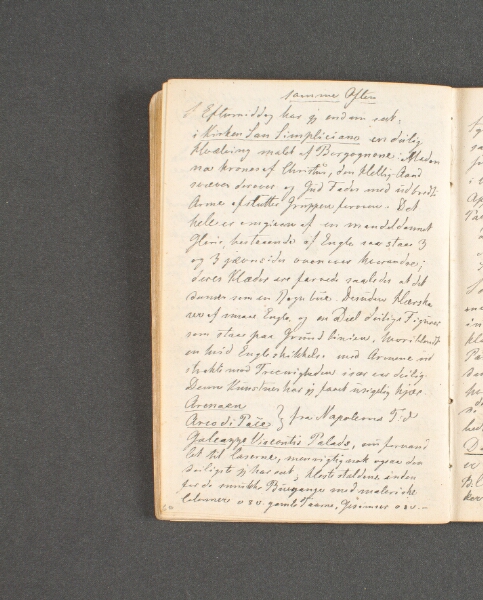 samme Aften
I Eftermiddag har jeg endnu set:
i Kirken San Simpliciano en deilig
Hvælving malet af Borgognone. Madon
na krones af Christus, den Hellig Aand
svæver derover og Gud Fader med udbredte
Arme afslutter Gruppen foroven. Det
hele er omgiven af en mandeldannet
Glorie, bestaaende af Engle som staar 3
og 3 jævnsides ovenover hverandre;
deres Klæder ere farvede saaledes at det
danner som en Regnbue. Desuden Hærska
rer af smaa Engle og en Deel deilige Figurer
som staar paa Grundlinien, hvoriblandt
en hvid Engleskikkelse med Armene ud
strakte mod Treenigheden især er deilig.
Denne Kunstner har jeg faaet usigelig kjær.
Arenaen
Arco di Pace } fra Napoleons T.d
Galeazzo Viscontis Palads, nu forvand
let til Caserne, men rigtignok ogsaa den
deiligste jeg har set; inden
for de smukke Buegange med maleriske
o s v. gamle o s v.